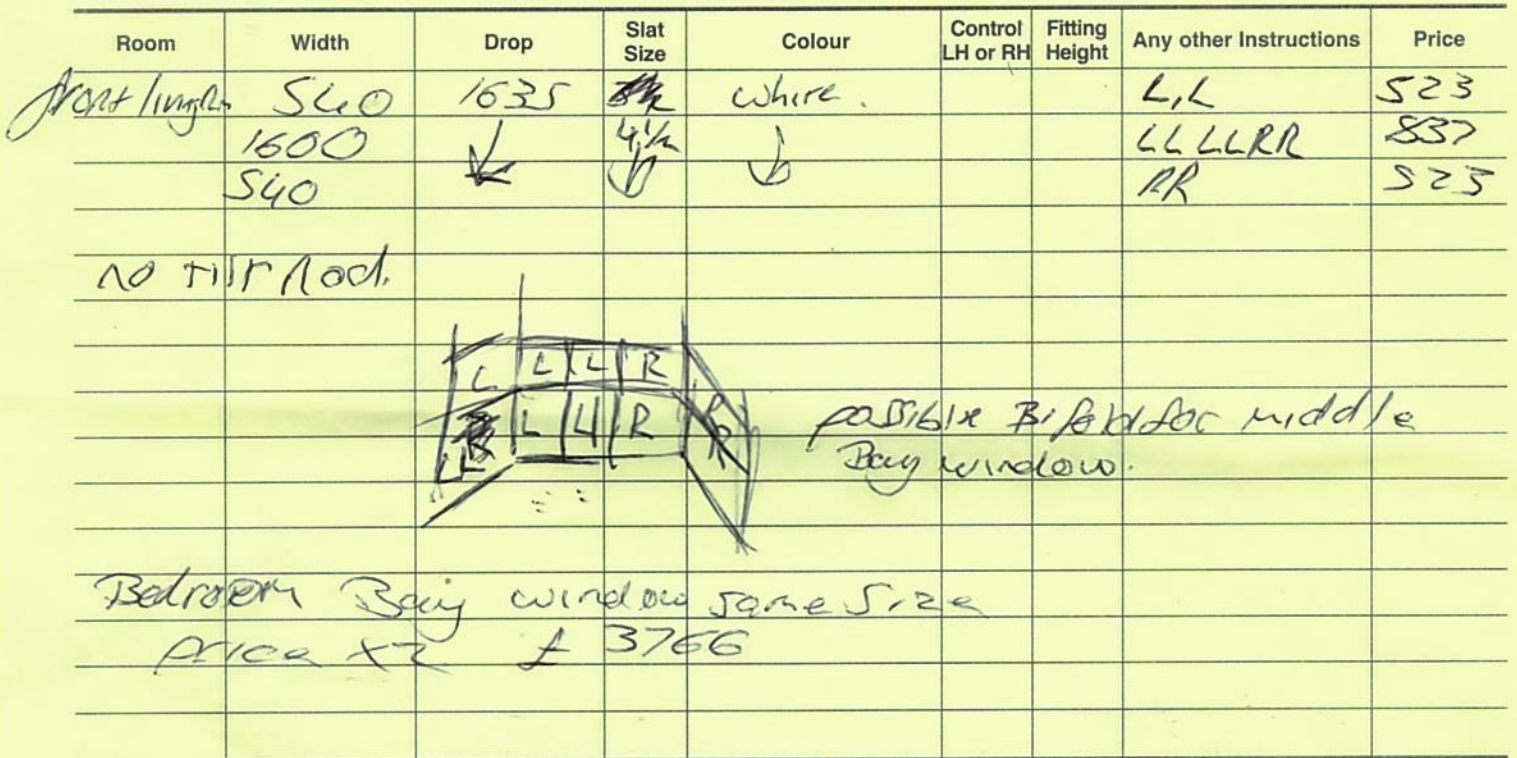 Room Width Drop Slat Size Colour Control LH or RH Fitting Height Any other Instructions Price
front 540 1635 white. L,L 523
1600 4½ LLLLRR 837
540 RR 523
no tilt Rod.
L L L R
L L R R
LL R
possible Bifold for middle
Bay window.
Bedroom Bay window same size
price x2 £ 3766